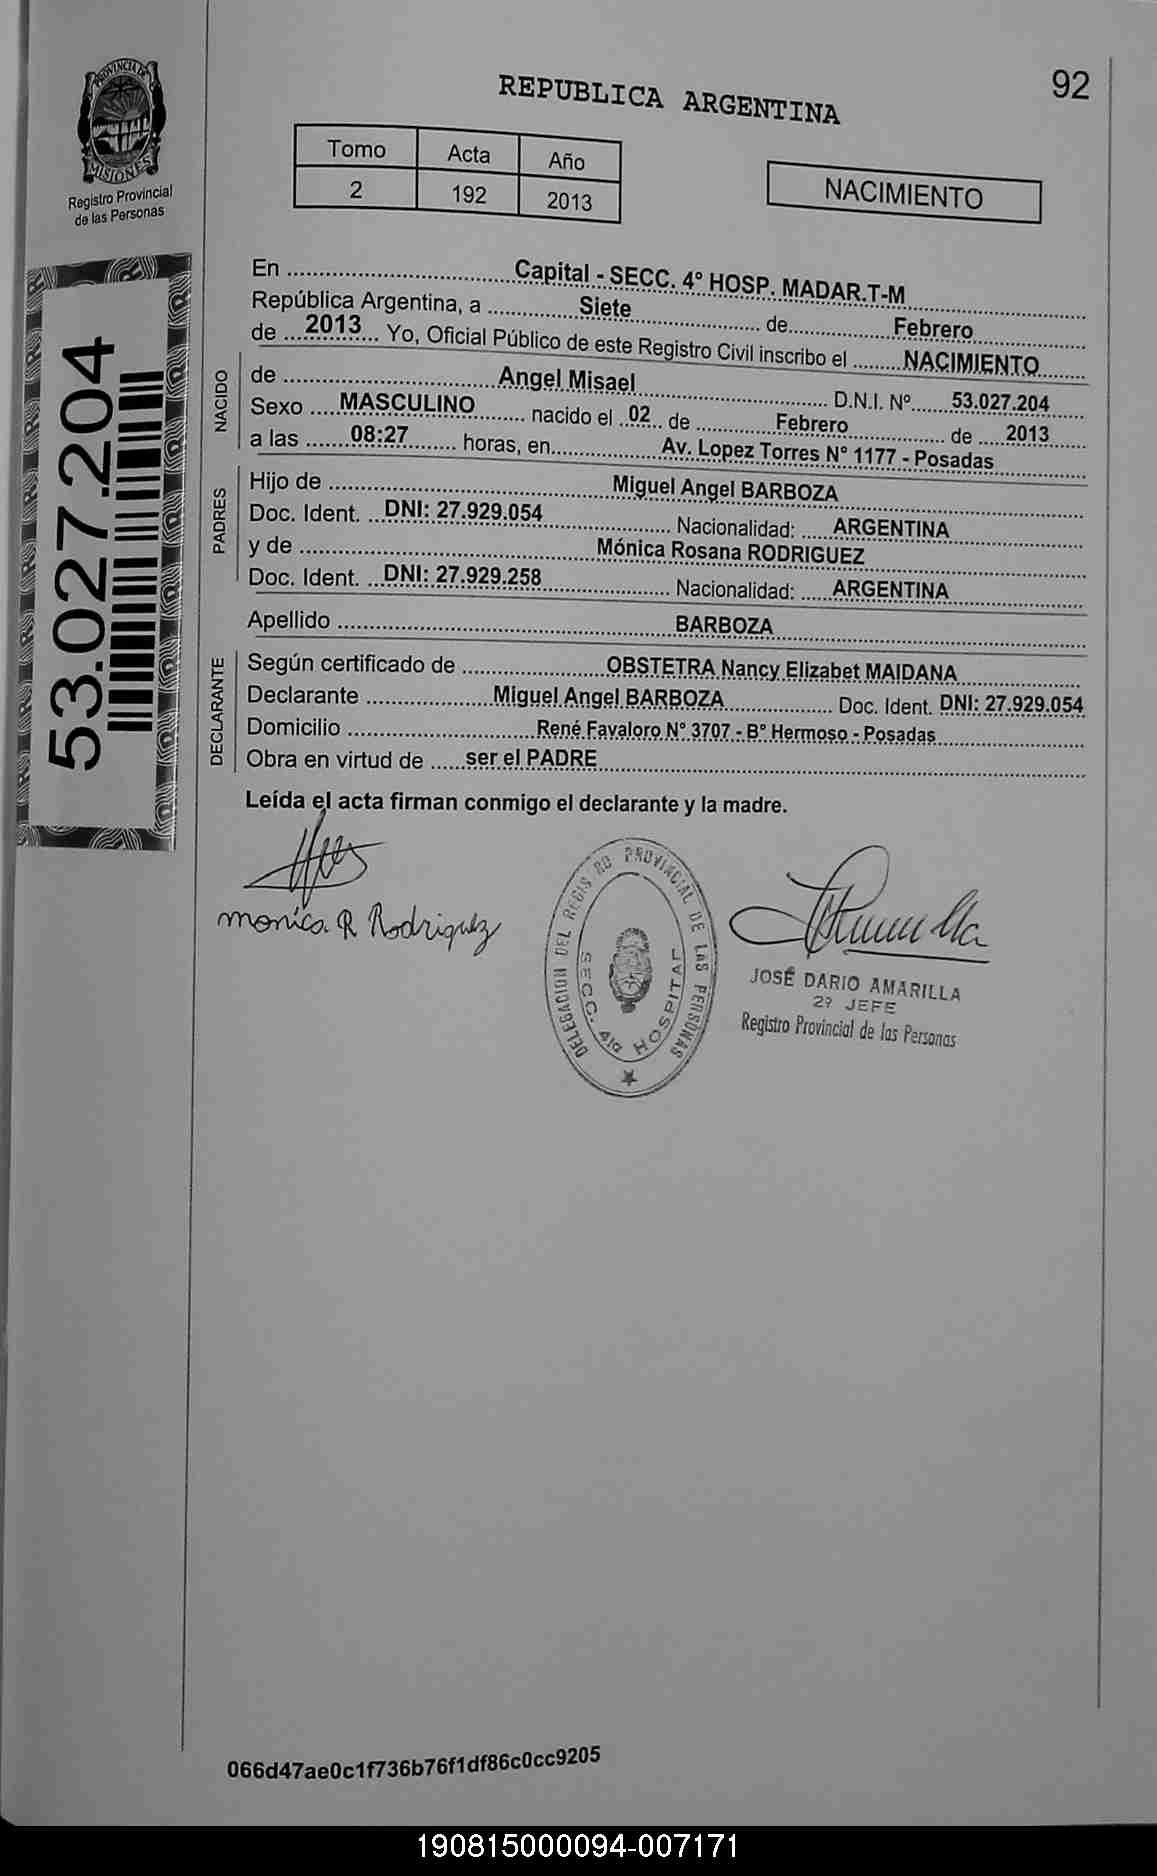 92
PROVINCIA DE
MISIONES
Registro Provincial
de las Personas
REPUBLICA ARGENTINA
Tomo Acta Año
2 192 2013
NACIMIENTO
53.027.204
En ........ Capital - SECC. 4° HOSP. MADAR.T-M ........
República Argentina, a ........ Siete ........ de ........ Febrero ........
de ... 2013 ... Yo, Oficial Público de este Registro Civil inscribo el ........ NACIMIENTO ........
NACIDO
de ........ Angel Misael ........ D.N.I. Nº ...... 53.027.204
Sexo .... MASCULINO ........ nacido el .. 02 .. de ........ Febrero ........ de .... 2013 ......
a las ...... 08:27 ........ horas, en ........ Av. Lopez Torres N° 1177 - Posadas
PADRES
Hijo de ........ Miguel Angel BARBOZA ........
Doc. Ident. ... DNI: 27.929.054 ........ Nacionalidad: ..... ARGENTINA ........
y de ........ Mónica Rosana RODRIGUEZ ........
Doc. Ident. ... DNI: 27.929.258 ........ Nacionalidad: ..... ARGENTINA ........
Apellido ........ BARBOZA ........
DECLARANTE
Según certificado de ........ OBSTETRA Nancy Elizabet MAIDANA ........
Declarante ........ Miguel Angel BARBOZA ........ Doc. Ident. DNI: 27.929.054
Domicilio ........ René Favaloro N° 3707 - B° Hermoso - Posadas ........
Obra en virtud de ..... ser el PADRE ........
Leída el acta firman conmigo el declarante y la madre.
monica R Rodriguez
DELEGACION DEL REGISTRO PROVINCIAL DE LAS PERSONAS
SECC. 4ta HOSPITAL
JOSÉ DARIO AMARILLA
2º JEFE
Registro Provincial de las Personas
066d47ae0c1f736b76f1df86c0cc9205
190815000094-007171